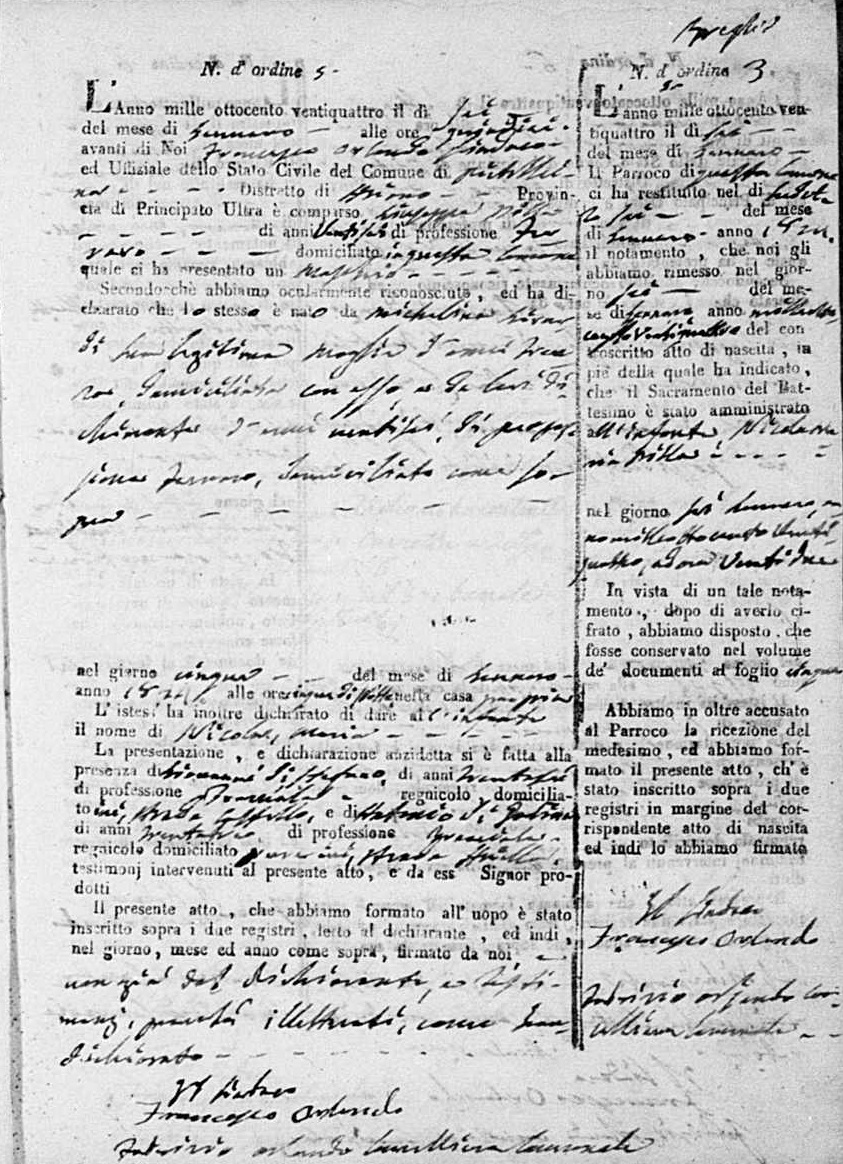 N. d' ordine 5
L'Anno mille ottocento ventiquattro il dì sei
del mese di Gennaro alle ore quindici
avanti di Noi Francesco Orlando Sindaco
ed Uffiziale dello Stato Civile del Comune di
Distretto di Provin-
cia di Principato Ultra è comparso Giuseppe
di anni ventisei di professione
domiciliato in questo Comune
quale ci ha presentato un maschio
Secondocchè abbiamo ocularmente riconosciuto, ed ha di-
chiarato che lo stesso è nato da Michelina
di sua legitima moglie d'anni
domiciliata con esso e da lui di-
chiarante d'anni ventisei, di profes-
sione domiciliato come so-
pra
nel giorno cinque del mese di Gennaro
anno alle ore cinque di notte nella casa propria
L' istesso ha inoltre dichiarato di dare all'infante
il nome di Nicola, Maria
La presentazione, e dichiarazione anzidetta si è fatta alla
presenza di Giovanni di Stefano, di anni
di professione regnicolo domicilia-
to ivi, strada Castello, e di Antonio di
di anni di professione
regnicolo domiciliato pure ivi, strada
testimonj intervenuti al presente atto, e da ess Signor pro-
dotti
Il presente atto, che abbiamo formato all' uopo è stato
inscritto sopra i due registri, letto al dichiarante, ed indi,
nel giorno, mese ed anno come sopra, firmato da noi
non già dal dichiarante, e testi-
monj, perché illetterati, come han-
dichiarato
Il Sindaco
Francesco Orlando
Orlando Cancelliere Comunale
N. d' ordine 3
L' anno mille ottocento ven-
tiquattro il dì sei
del mese di Gennaro
Il Parroco di questa Comune
ci ha restituito nel dì sudet-
to sei del mese
di Gennaro anno
il notamento, che noi gli
abbiamo rimesso nel gior-
no sei del me-
se di Gennaro anno milleotto-
cento ventiquattro del con
troscritto atto di nascita, in
piè della quale ha indicato,
che il Sacramento del Bat-
tesimo è stato amministrato
all'infante Nicola Ma-
ria
nel giorno sei Gennaro, an-
no milleottocento venti
quattro, ad ore ventidue
In vista di un tale nota-
mento, dopo di averlo ci-
frato, abbiamo disposto che
fosse conservato nel volume
de' documenti al foglio cinque
Abbiamo in oltre accusato
al Parroco la ricezione del
medesimo, ed abbiamo for-
mato il presente atto, ch' è
stato inscritto sopra i due
registri in margine del cor-
rispondente atto di nascita
ed indi lo abbiamo firmato
Il Sindaco
Francesco Orlando
Orlando Can-
celliere Comunale